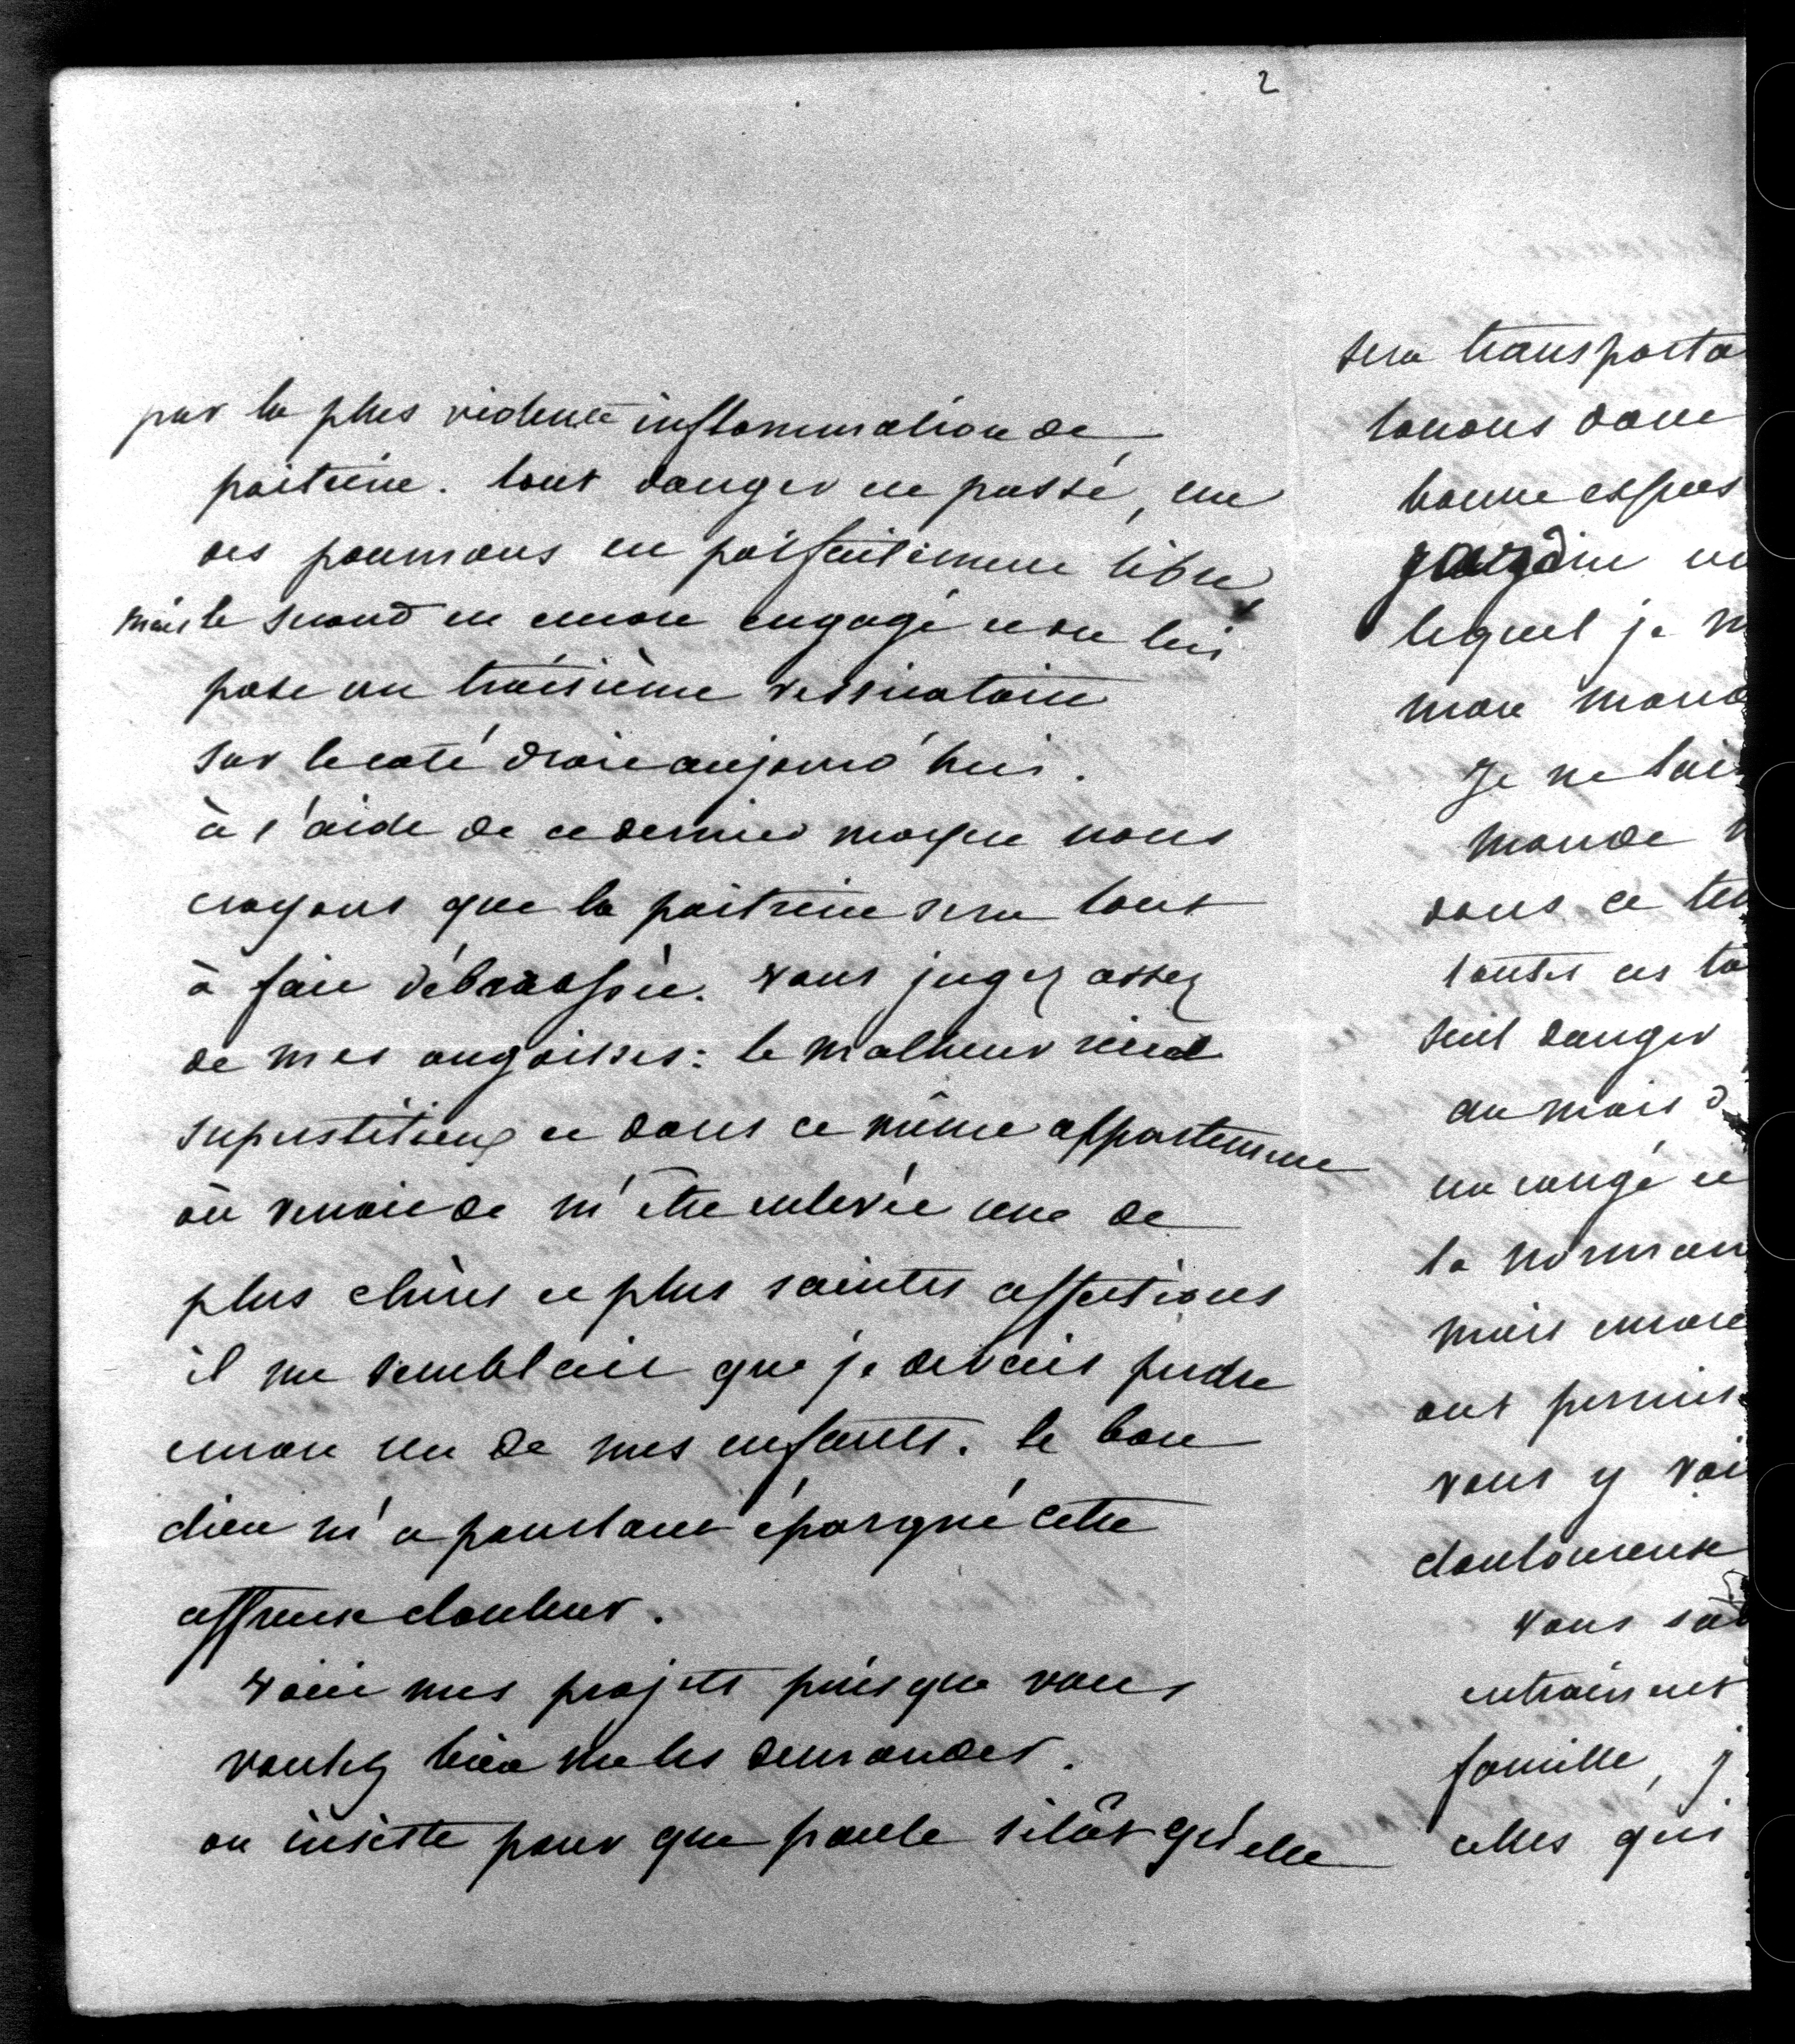 2
par la plus violente inflammation de
poitrine. tout danger est passé, un
des poumons est parfaitement libre,
mais le second est encore engagé et on lui
pose un troisième vessicatoire
sur le coté droit aujourd'hui.
à l'aide de ce dernier moyen nous
croyons que la poitrine sera tout
à fait débarassée. vous jugez assez
de mes angoisses: le malheur rend
superstitieux et dans ce même appartement
où venait de m'être enlevée une de
plus chères et plus saintes affections
il me semblait que je devais perdre
encore un de mes enfants. le bon
dieu m'a pourtant épargné cette
affreuse douleur.
voici mes projets puisque vous
voulez bien me les demander.
on insiste pour que paule sitôt qu'elle
sera transporta
louons dans
bonne expos
jardin
lequel je m
mon
Je ne
monde
dans ce
toutes ces
seul danger
au mois d
un congé et
la norman
mais encore
ont permis
vous y
douloureuse
vous
entrainent
famille, j
celles qui